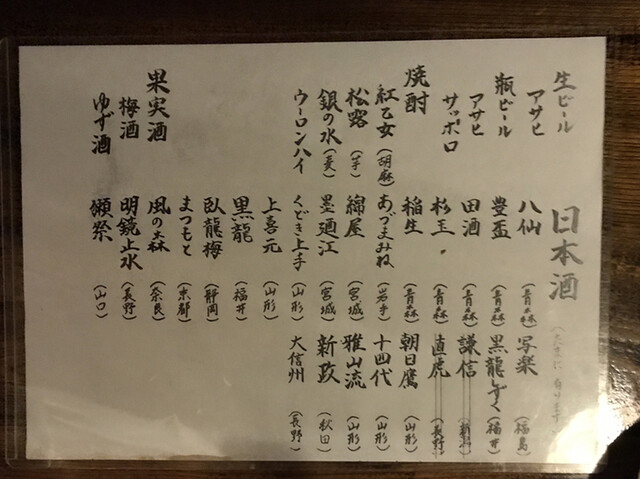 生ビール
アサヒ
瓶ビール
アサヒ
サッポロ
焼酎
紅乙女（胡麻）
松露（芋）
銀の水（麦）
ウーロンハイ
果実酒
梅酒
ゆず酒
日本酒
八仙（青森）
豊盃（青森）
田酒（青森）
杉玉（青森）
稲生（青森）
あづまみね（岩手）
綿屋（宮城）
墨廼江（宮城）
くどき上手（山形）
上喜元（山形）
黒龍（福井）
臥龍梅（静岡）
まつもと（京都）
風の森（奈良）
明鏡止水（長野）
獺祭（山口）
写楽（福島）
黒龍しずく（福井）
謙信（新潟）
直虎（長野）
朝日鷹（山形）
十四代（山形）
雅山流（山形）
新政（秋田）
大信州（長野）